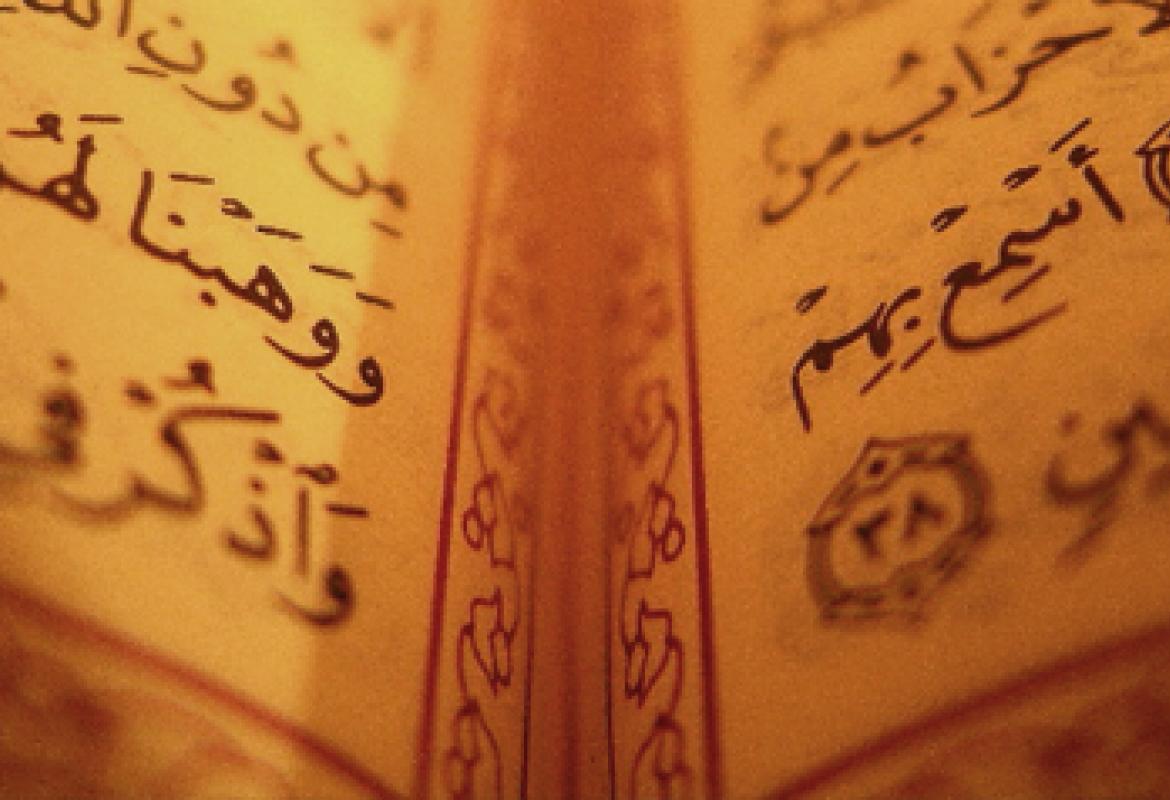 حْزَابُ مِنۢ
أَسْمِعْ بِهِمْ
ينٍ ٣٨
مِن دُونِ ٱللَّـ
وَوَهَبْنَا لَهُم
وَٱذْكُرْ فِـ